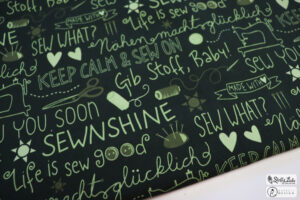 MADE WITH
glücklich
Life is sew
SEW WHAT?
Nähen macht glücklich
KEEP CALM & SEW ON
Gib Stoff, Baby!
MADE WITH
YOU SOON
SEWNSHINE
SEW WHAT?
Life is sew good
macht glücklich
KEEP CALM
SEW